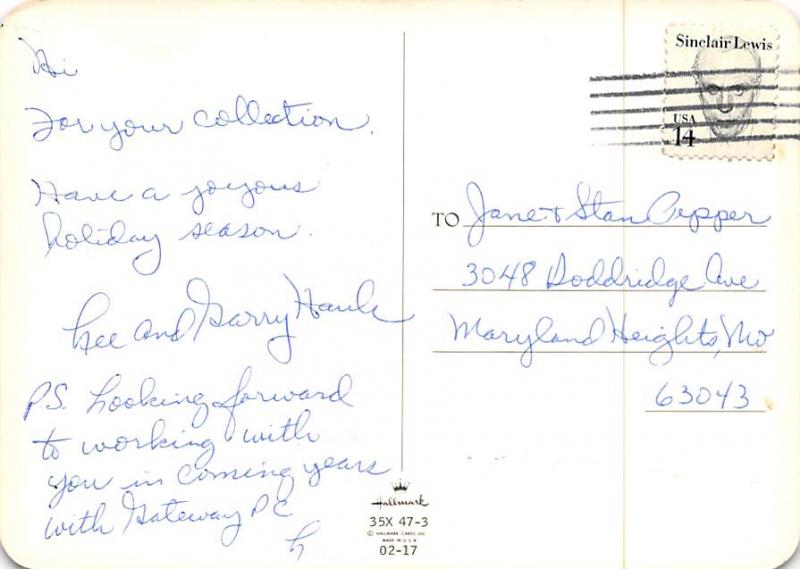 Hi
For your collection.
Have a joyous
holiday season.
Lee and Garry Hauk
P.S. Looking forward
to working with
you in coming years
with Gateway PC
L
Sinclair Lewis
USA
14
TO Jane + Stan Pepper
3048 Doddridge Ave
Maryland Heights, Mo
63043
Hallmark
35X 47-3
© HALLMARK CARDS, INC.
MADE IN U.S.A.
02-17